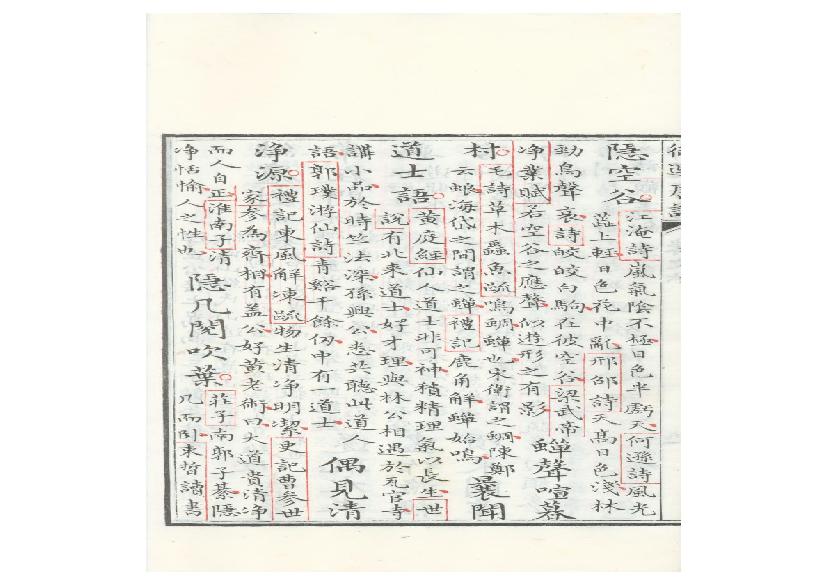 隱空谷
江淹詩嵐氣陰不極日色半虧天何遜詩風光
蕊上輕日色花中亂邢邵詩天高日色淺林
勁鳥聲哀詩皎皎白駒在彼空谷梁武帝
淨業賦若空谷之應聲似遊形之有影
蟬聲喧暮
村
毛詩草木蟲魚疏鳴蜩蟬也宋衛謂之蜩陳鄭
云蜋海岱之間謂之蟬禮記鹿角解蟬始鳴
曩聞
道士語
黃庭經仙人道士非可神積精理氣以長生世
說有北來道士好才理與林公相遇於瓦官寺
講小品於時竺法深孫興公悉共聽此道人
語郭璞游仙詩青谿千餘仞中有一道士
偶見清
淨源
禮記東風解凍疏物生清淨明潔史記曹參世
家參為齊相有蓋公好黃老術曰大道貴清淨
而人自正淮南子清
淨恬愉人之性也
隱几閱吹葉
莊子南郭子綦隱
几而坐束晳讀書